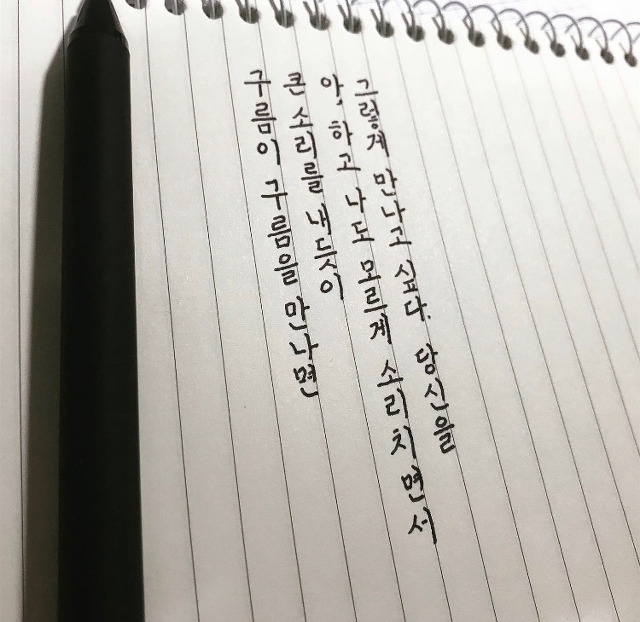 구름이 구름을 만나면
큰 소리를 내듯이
아, 하고 나도 모르게 소리치면서
그렇게 만나고 싶다. 당신을